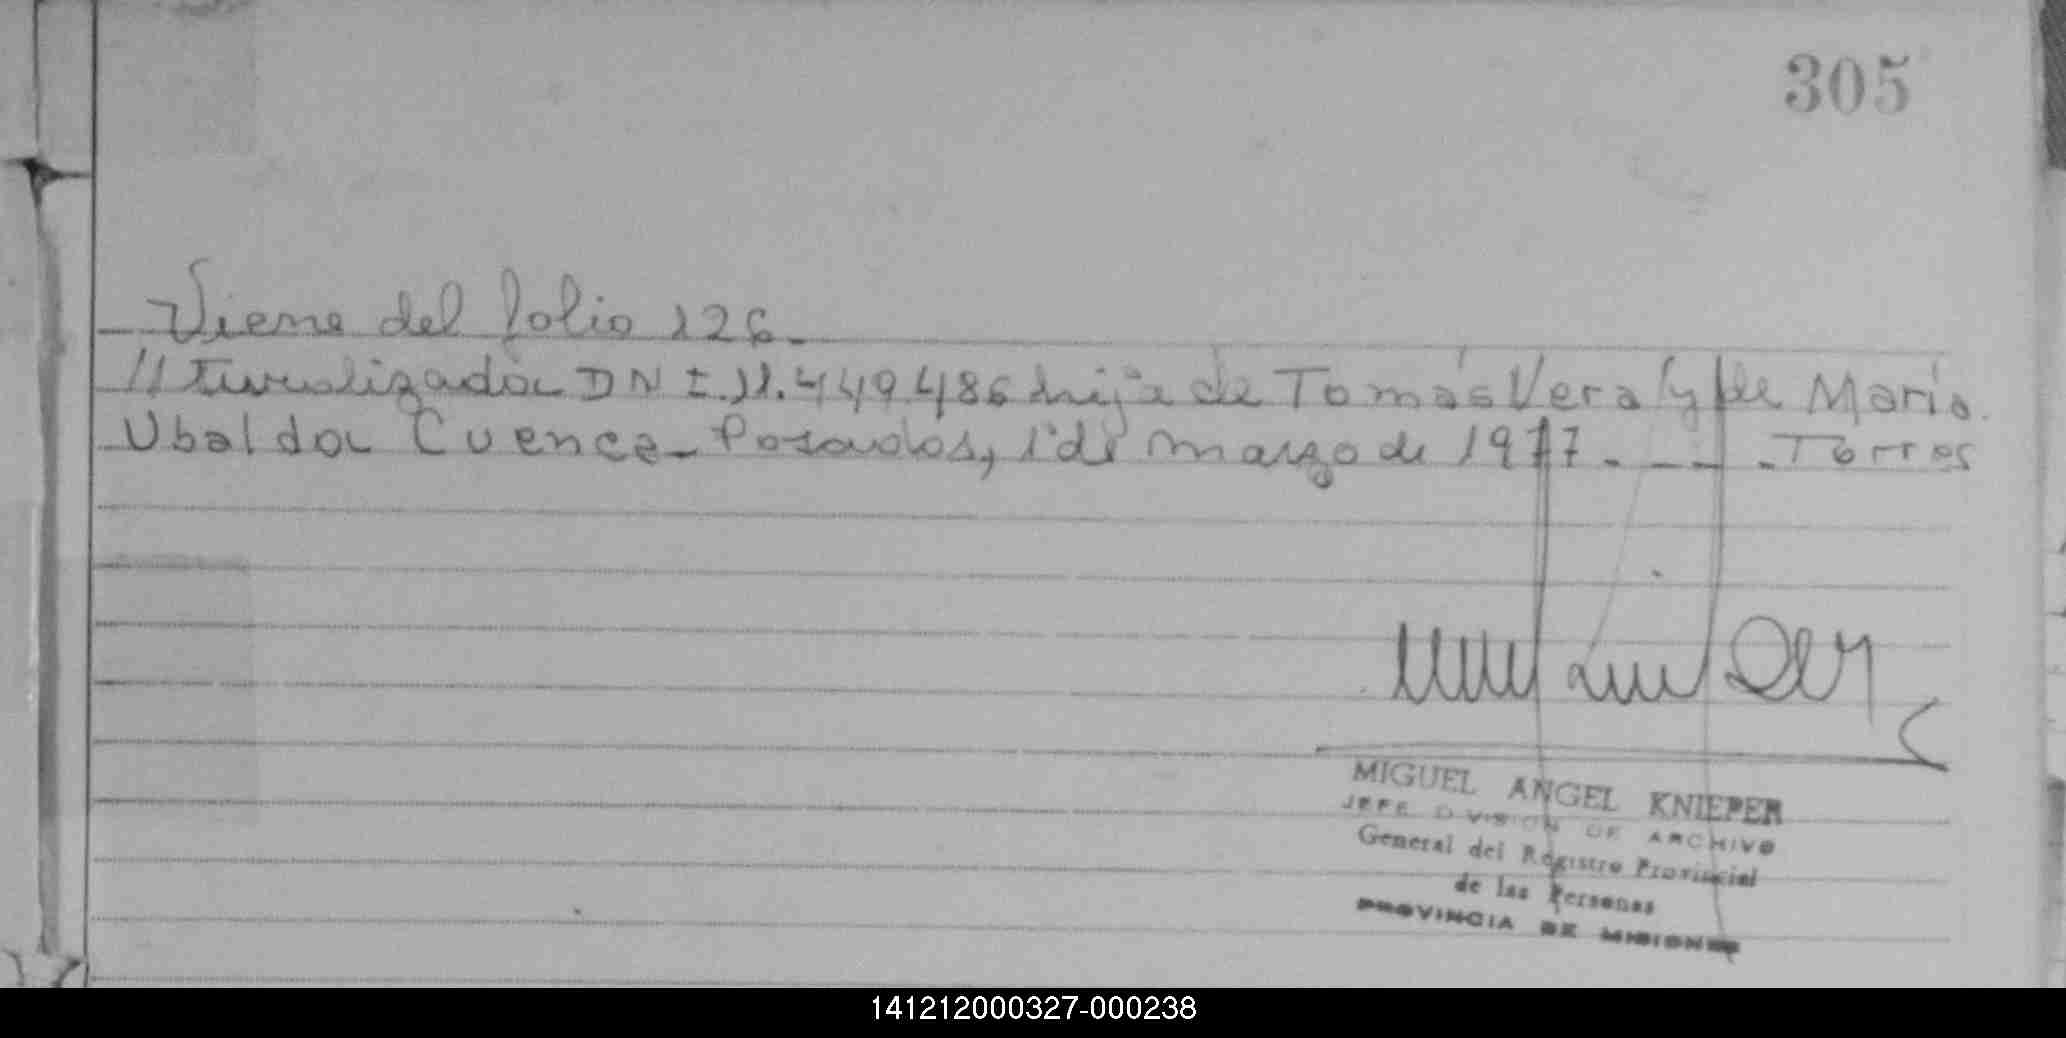 305
Viene del folio 126.
// turalizada DNI. 11.449.486 hija de Tomás Vera y de María
Ubalda Cuenca - Posadas, 1° de marzo de 1977. - - - . Torres
MIGUEL ANGEL KNIEPER
JEFE DIVISION DE ARCHIVO
General del Registro Provincial
de las Personas
PROVINCIA DE MISIONES
141212000327-000238